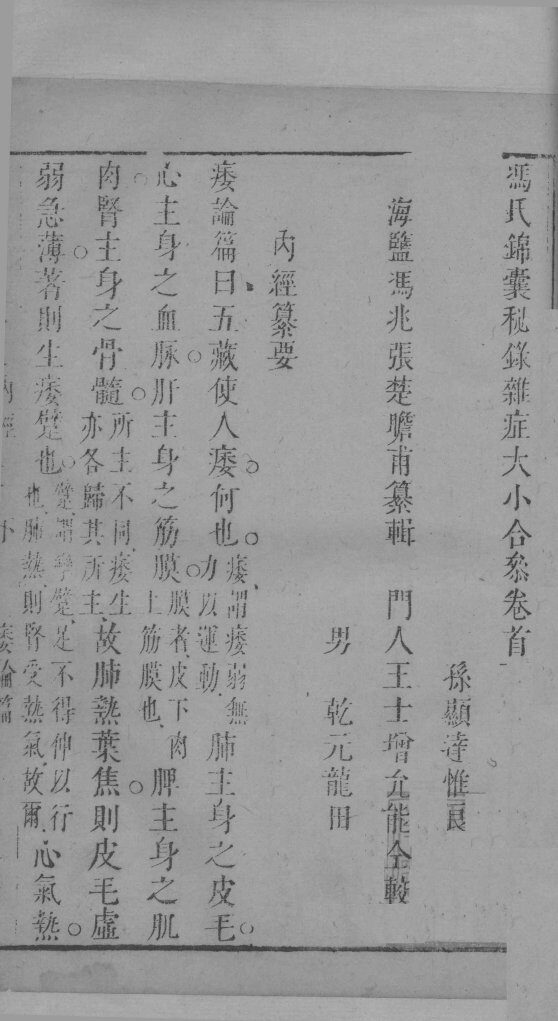 馮氏錦囊秘錄雜症大小合叅卷首
孫顯達惟良
海鹽馮兆張楚瞻甫纂輯　門人王士增允能仝較
男　乾元龍田
內經纂要
痿論篇曰五藏使人痿何也痿謂痿弱無力以運動肺主身之皮毛
心主身之血脉肝主身之筋膜膜者皮下肉上筋膜也脾主身之肌
肉腎主身之骨髓所主不同痿生亦各歸其所主故肺熱葉焦則皮毛虛
弱急薄著則生痿躄也躄謂攣躄足不得伸以行也肺熱則腎受熱氣故爾心氣熱